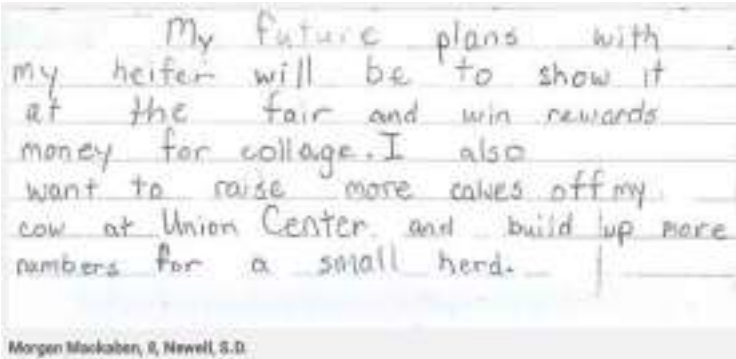 My future plans with
my heifer will be to show it
at the fair and win rewards
money for collage. I also
want to raise more calves off my
cow at Union Center and build up more
numbers for a small herd.
Morgan Mackaben, 8, Newell, S.D.